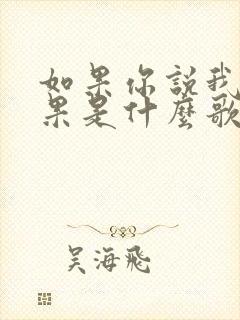 如果你說我
果是什麼歌
吴海飛